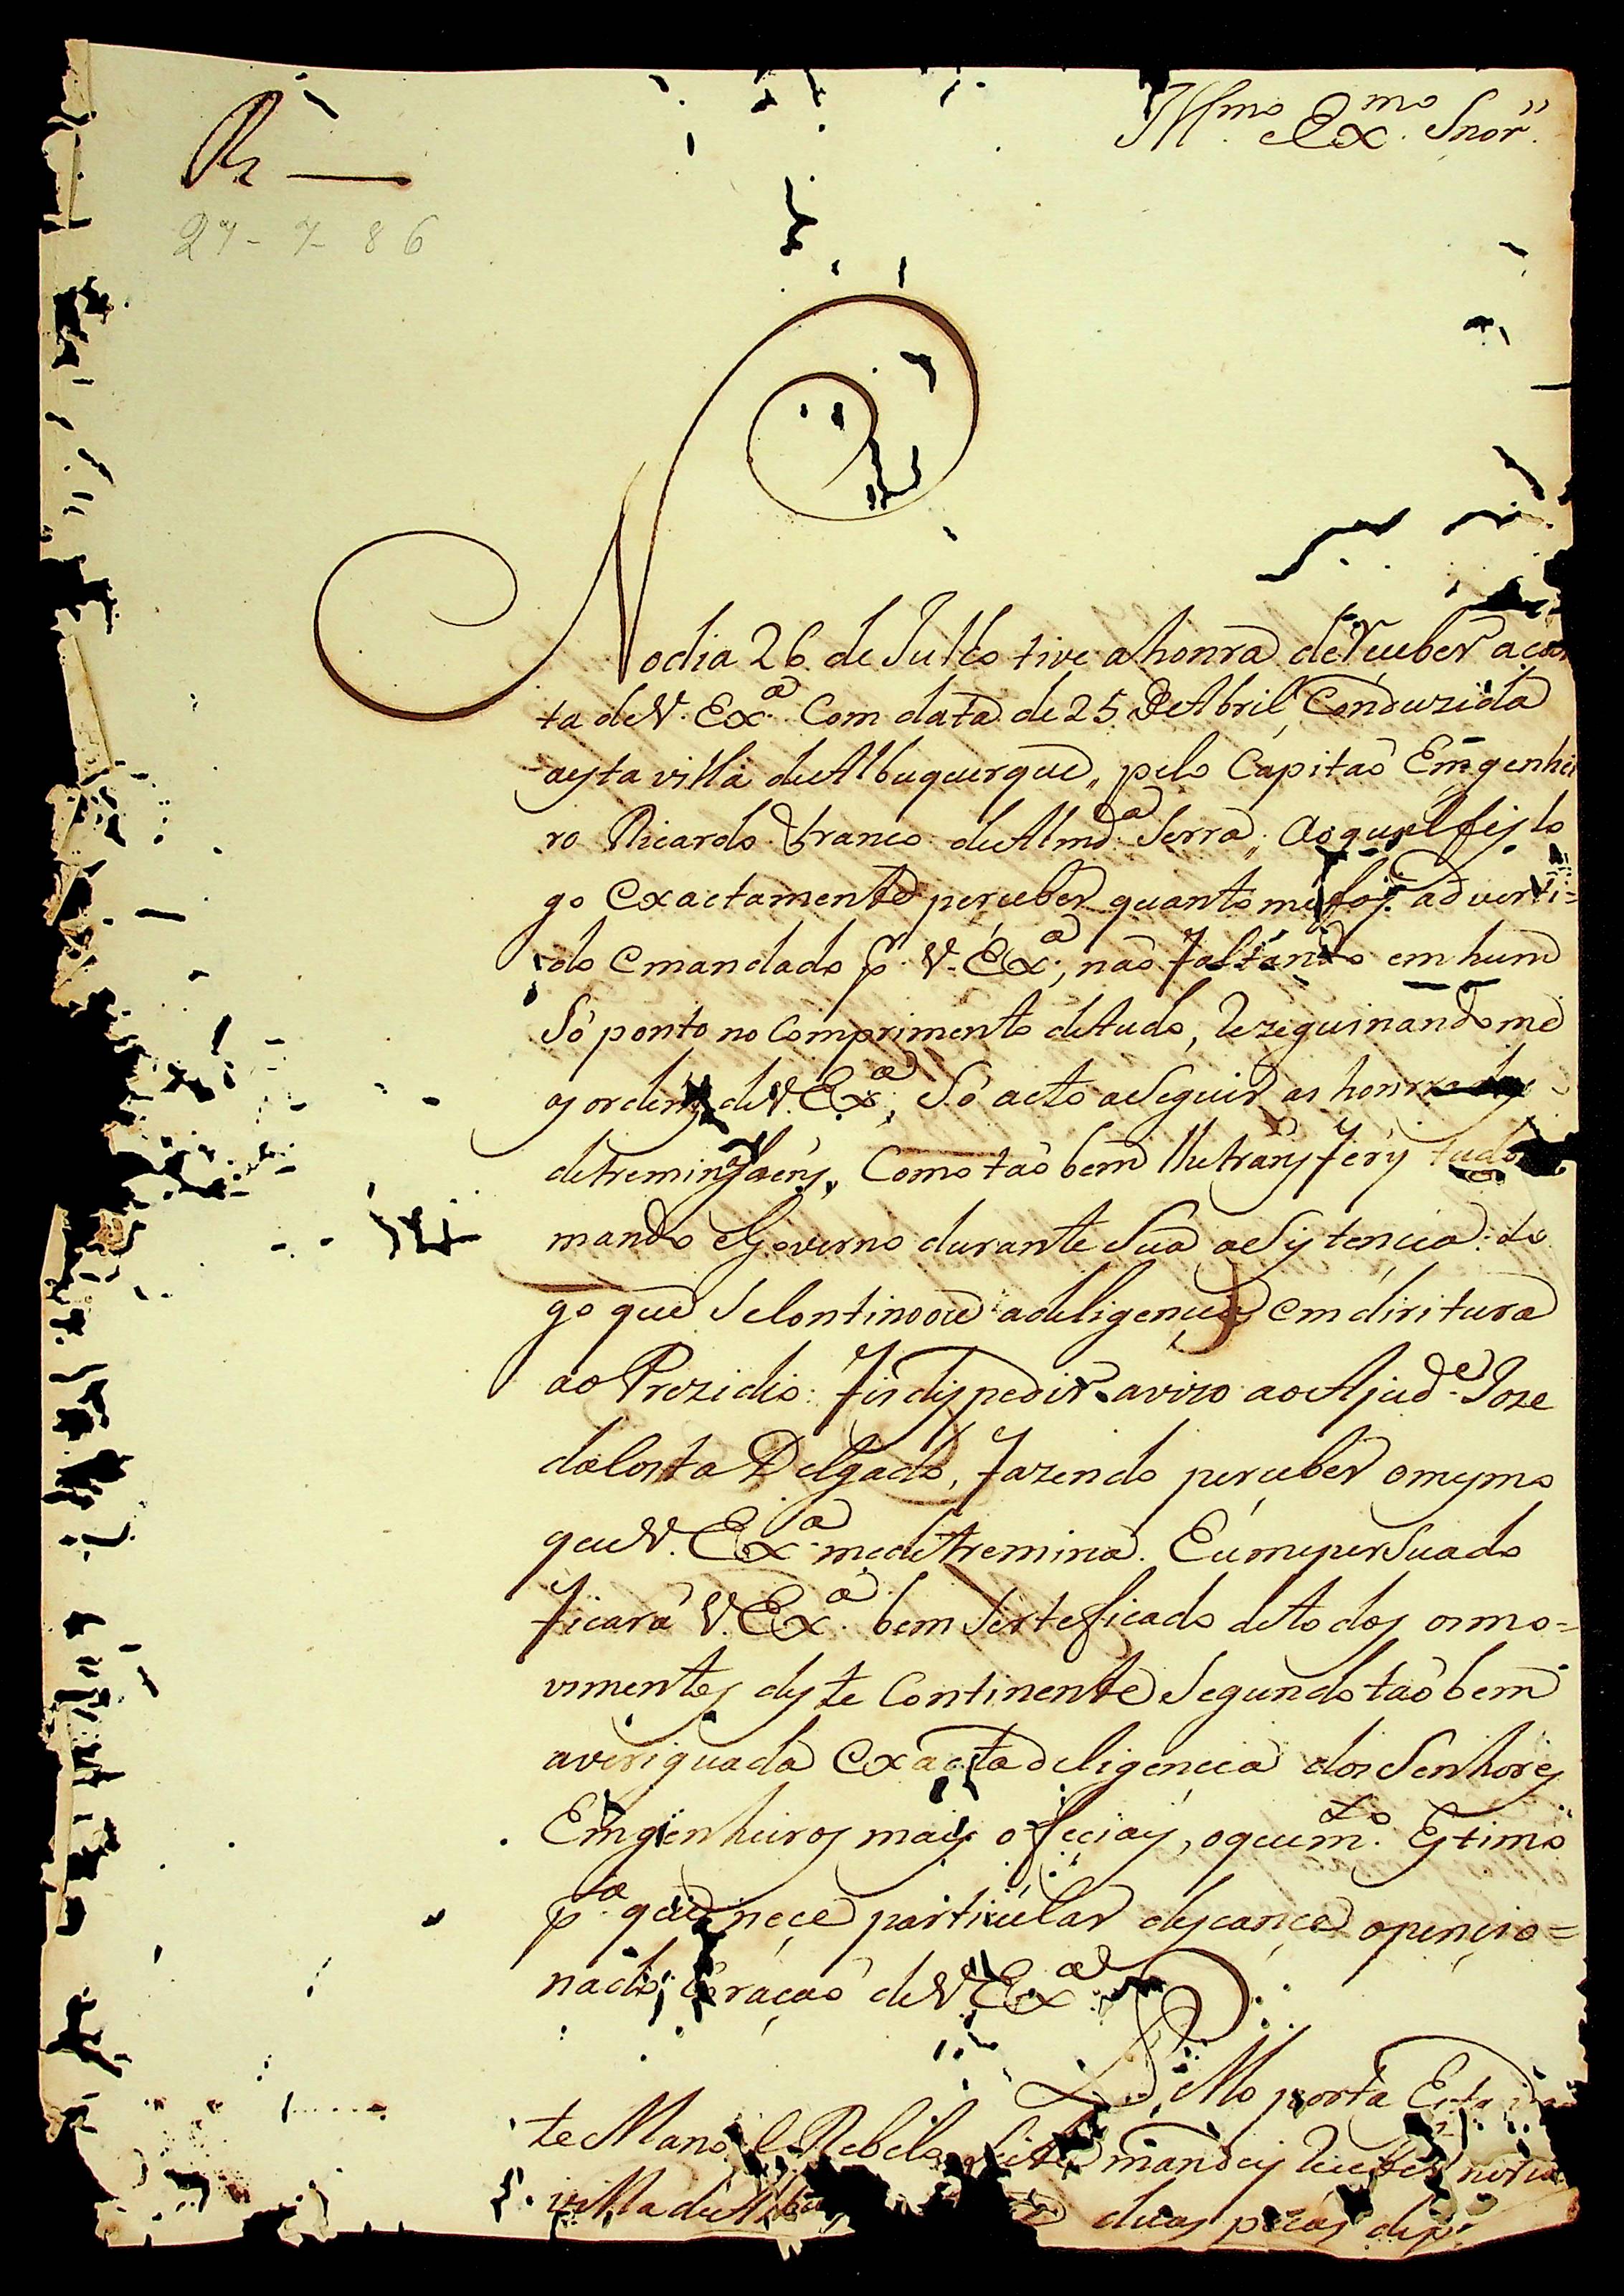 Ill.mo Ex.mo Snor.
R.
27-7-86
No dia 26 de Julho tive a honra de receber a car
ta de V. Ex.a Com data de 25 de Abril, Conduzida
aesta villa de Albuquerque, pelo Capitaõ Emgenhei
ro Ricardo Franco de Almd.a Serra, Ao qual fis lo
go exactamente perceber quanto me foi adverti=
do e mandado p.r V. Ex.a, naõ faltando em hum
Só ponto no Comprimento de tudo, Rezequinandome
as ordens de V. Ex.a, Só acto a Seguir as honrradas
detreminaçoens, Como taõ bem lhe transfery tudo
mando e Governo durante Sua aSystencia: Lo
go que Se Continoou a deligencia em diritura
ao Prezidio: fis dispedir avizo ao Ajud.e Joze
da Costa Delgado, fazendo perceber o mesmo
que V. Ex.a me detremina. Eu me perSuado
ficará V. Ex.a bem Serteficado de todos os mo=
vimentos deste Continente Segundo taõ bem
averiguada exacta deligencia dos Senhores
Emgenheiros mais ofeciais, o que m.to Estimo
p.a que nece particular descance o pencio=
nado Coraçaõ de V. Ex.a
Mo porta Esta
te Manoel Rebelo Leite mandey
villa de Albu duas peças de p.